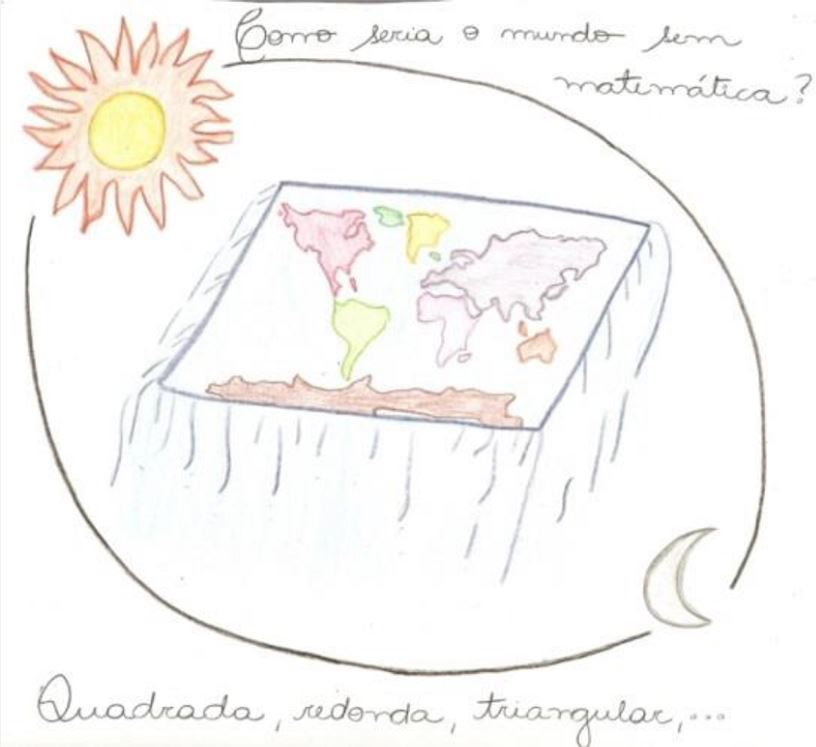 Como seria o mundo sem
matemática?
Quadrada, redonda, triangular,...